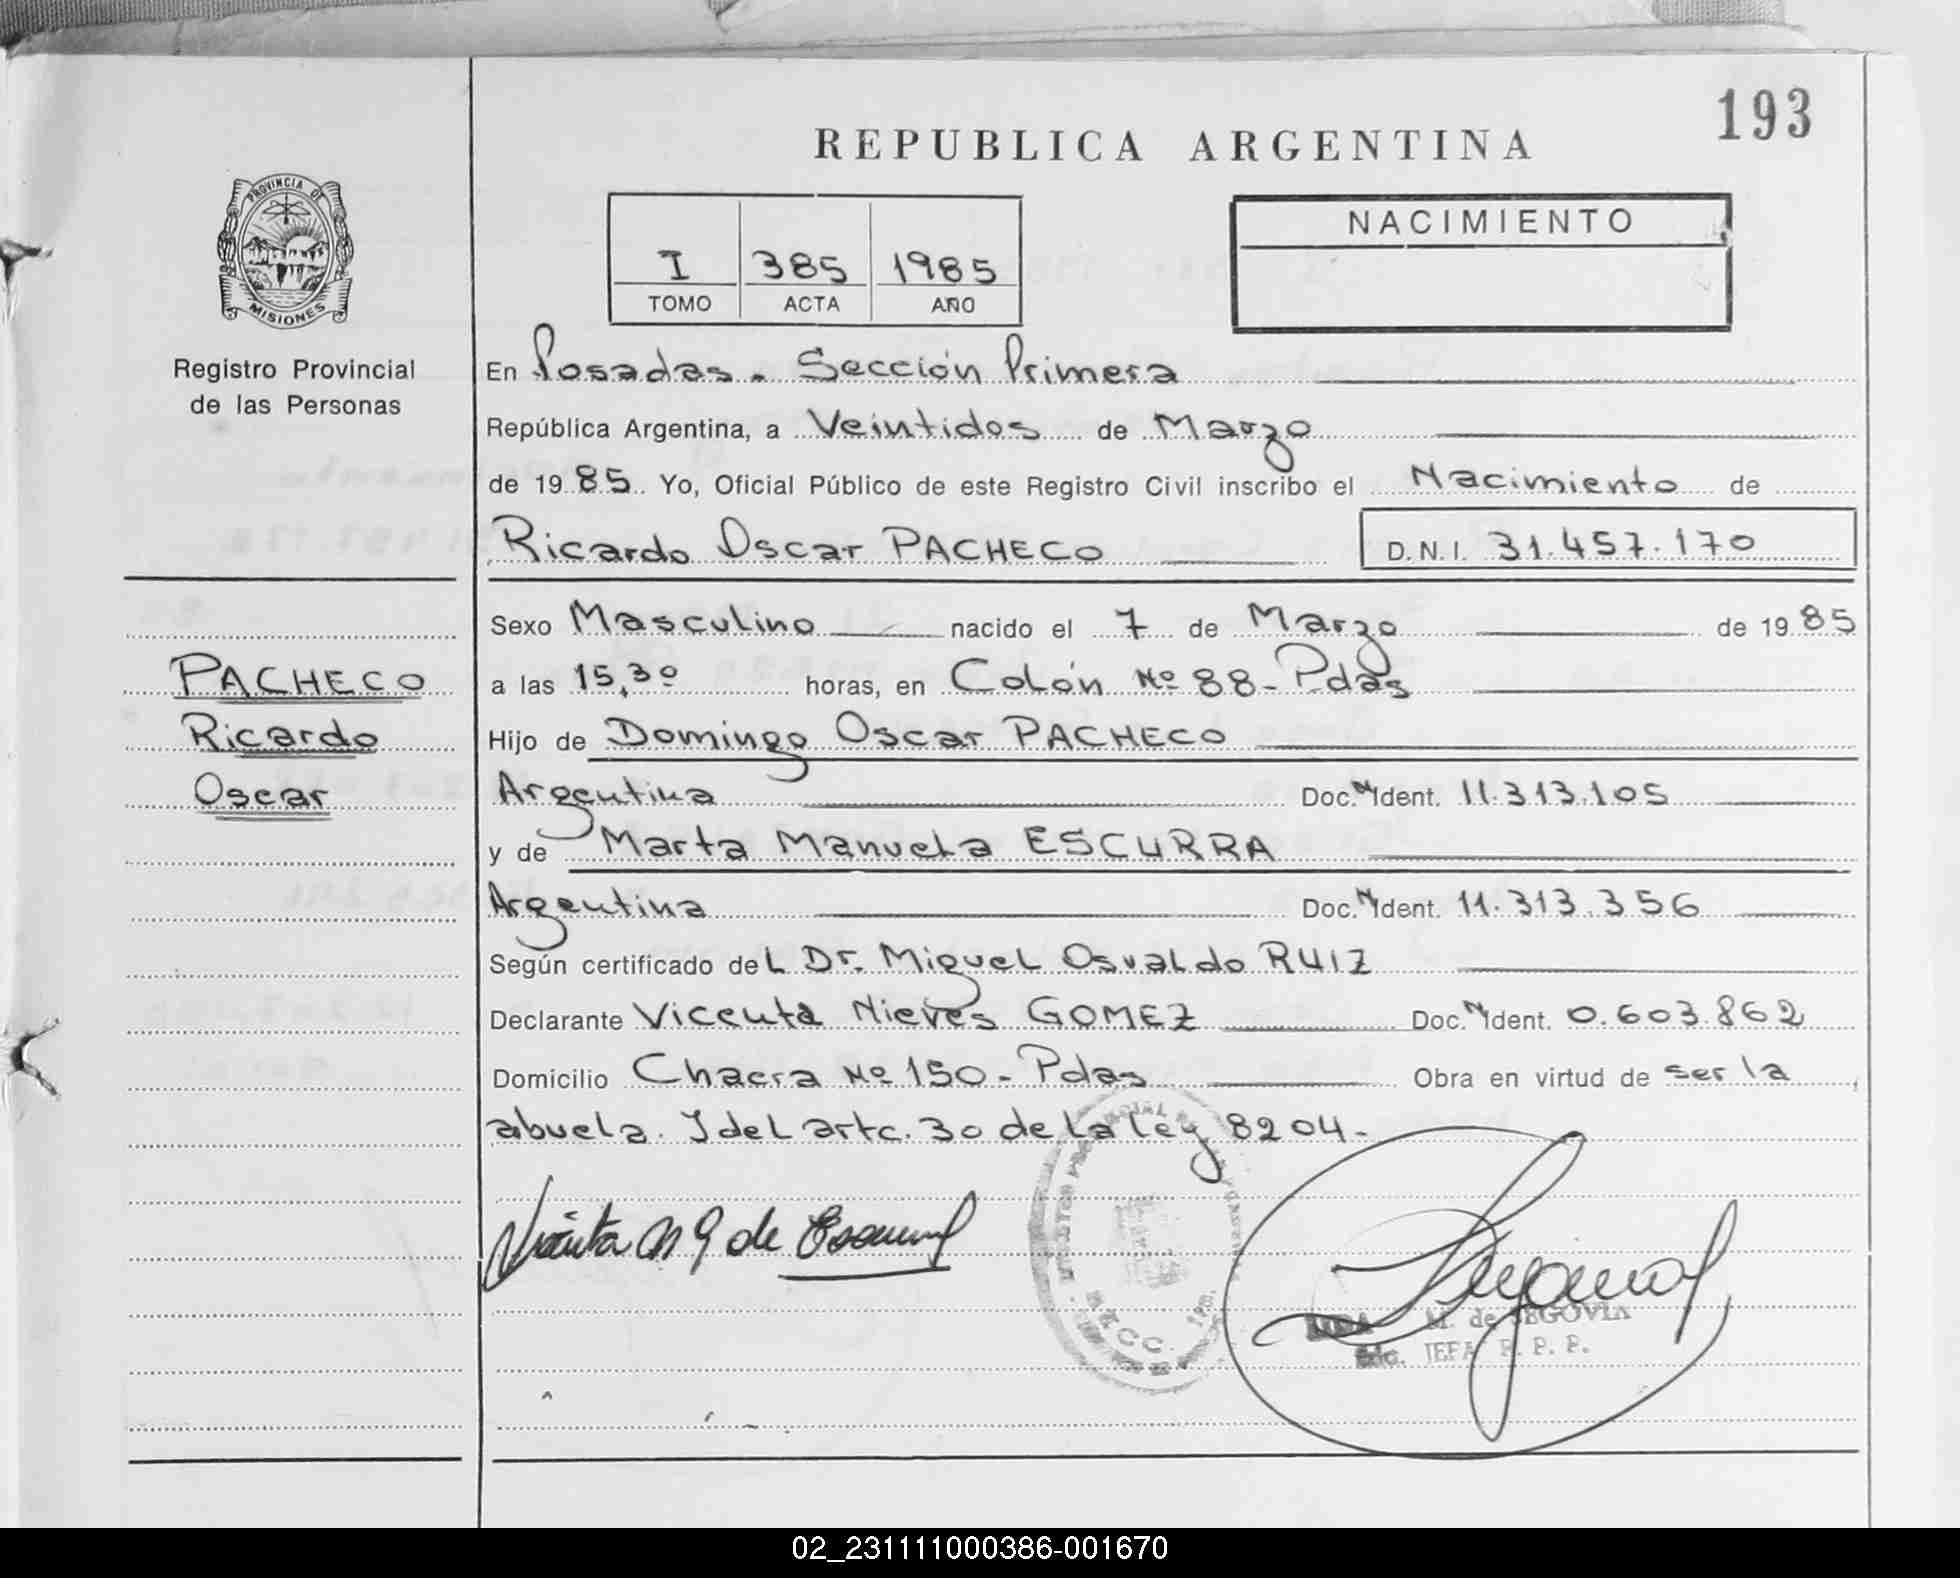 193
REPUBLICA ARGENTINA
PROVINCIA DE
MISIONES
Registro Provincial
de las Personas
I 385 1985
TOMO ACTA AÑO
NACIMIENTO
En Posadas. Sección Primera
República Argentina, a Veintidos de Marzo
de 1985 Yo, Oficial Público de este Registro Civil inscribo el Nacimiento de
Ricardo Oscar PACHECO D.N.I. 31.457.170
Sexo Masculino nacido el 7 de Marzo de 1985
PACHECO
Ricardo
Oscar
a las 15,30 horas, en Colón Nº 88- Pdas
Hijo de Domingo Oscar PACHECO
Argentina Doc. M Ident. 11.313.105
y de Marta Manuela ESCURRA
Argentina Doc. M Ident. 11.313.356
Según certificado del Dr. Miguel Osvaldo RUIZ
Declarante Vicenta Nieves GOMEZ Doc. M Ident. 0.603.862
Domicilio Chacra Nº 150- Pdas Obra en virtud de ser la
abuela. Y del artc. 30 de la ley 8204-
M. de SEGOVIA
JEFA R. P. P.
02_231111000386-001670